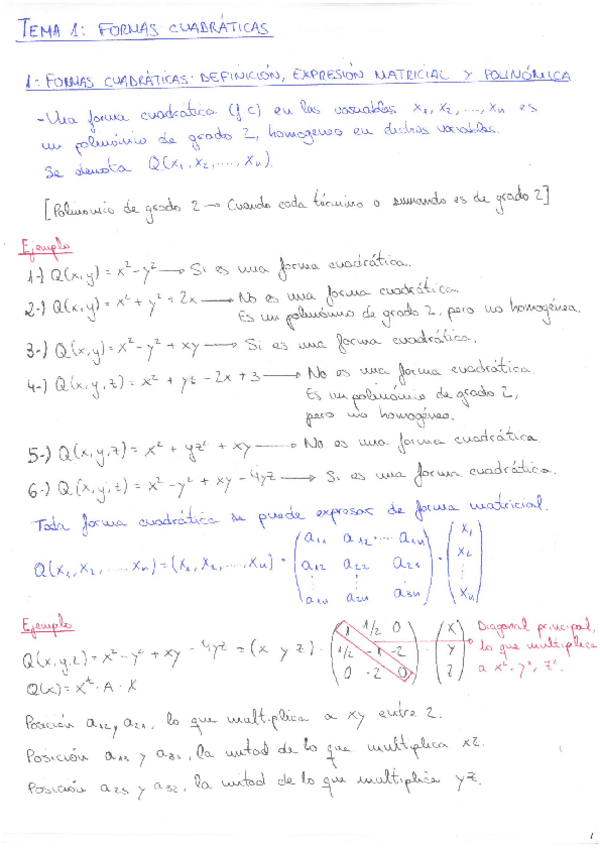 TEMA 1: FORMAS CUADRÁTICAS
1- FORMAS CUADRÁTICAS: DEFINICIÓN, EXPRESIÓN MATRICIAL Y POLINÓMICA
- Una forma cuadrática (f c) en las variables x₁, x₂, ..., xₙ es
un polinómio de grado 2, homogeneo en dichas variables.
Se denota Q(x₁, x₂, ...., xₙ).
[Polinomio de grado 2 → Cuando cada término o sumando es de grado 2]
Ejemplo
1-) Q(x,y) = x² - y² → Si es una forma cuadrática.
2-) Q(x,y) = x² + y² + 2x → No es una forma cuadrática.
Es un polinómio de grado 2, pero no homogénea.
3-) Q(x,y) = x² - y² + xy → Si es una forma cuadrática.
4-) Q(x,y,z) = x² + y² - 2x + 3 → No es una forma cuadrática.
Es un polinómio de grado 2,
pero no homogéneo.
5-) Q(x,y,z) = x² + yz² + xy → No es una forma cuadrática
6-) Q(x,y,z) = x² - y² + xy - 4yz → Si es una forma cuadrática.
Toda forma cuadrática se puede expresar de forma matricial.
a₁₁ a₁₂ ..... a₁ₙ x₁
Q(x₁, x₂, ..., xₙ) = (x₁, x₂, ..., xₙ) · a₁₂ a₂₂ a₂ₙ · x₂
a₁ₙ a₂ₙ a₃ₙ xₙ
Ejemplo
1 1/2 0 x Diagonal principal,
Q(x,y,z) = x² - y² + xy - 4yz = (x y z) · 1/2 -1 -2 · y lo que multiplica
0 -2 0 z a x², y², z².
Q(x) = xᵗ · A · X
Posición a₁₂ y a₂₁, lo que multiplica a xy entre 2.
Posición a₁₃ y a₃₁, la mitad de lo que multiplica xz.
Posición a₂₃ y a₃₂, la mitad de lo que multiplica yz.
1